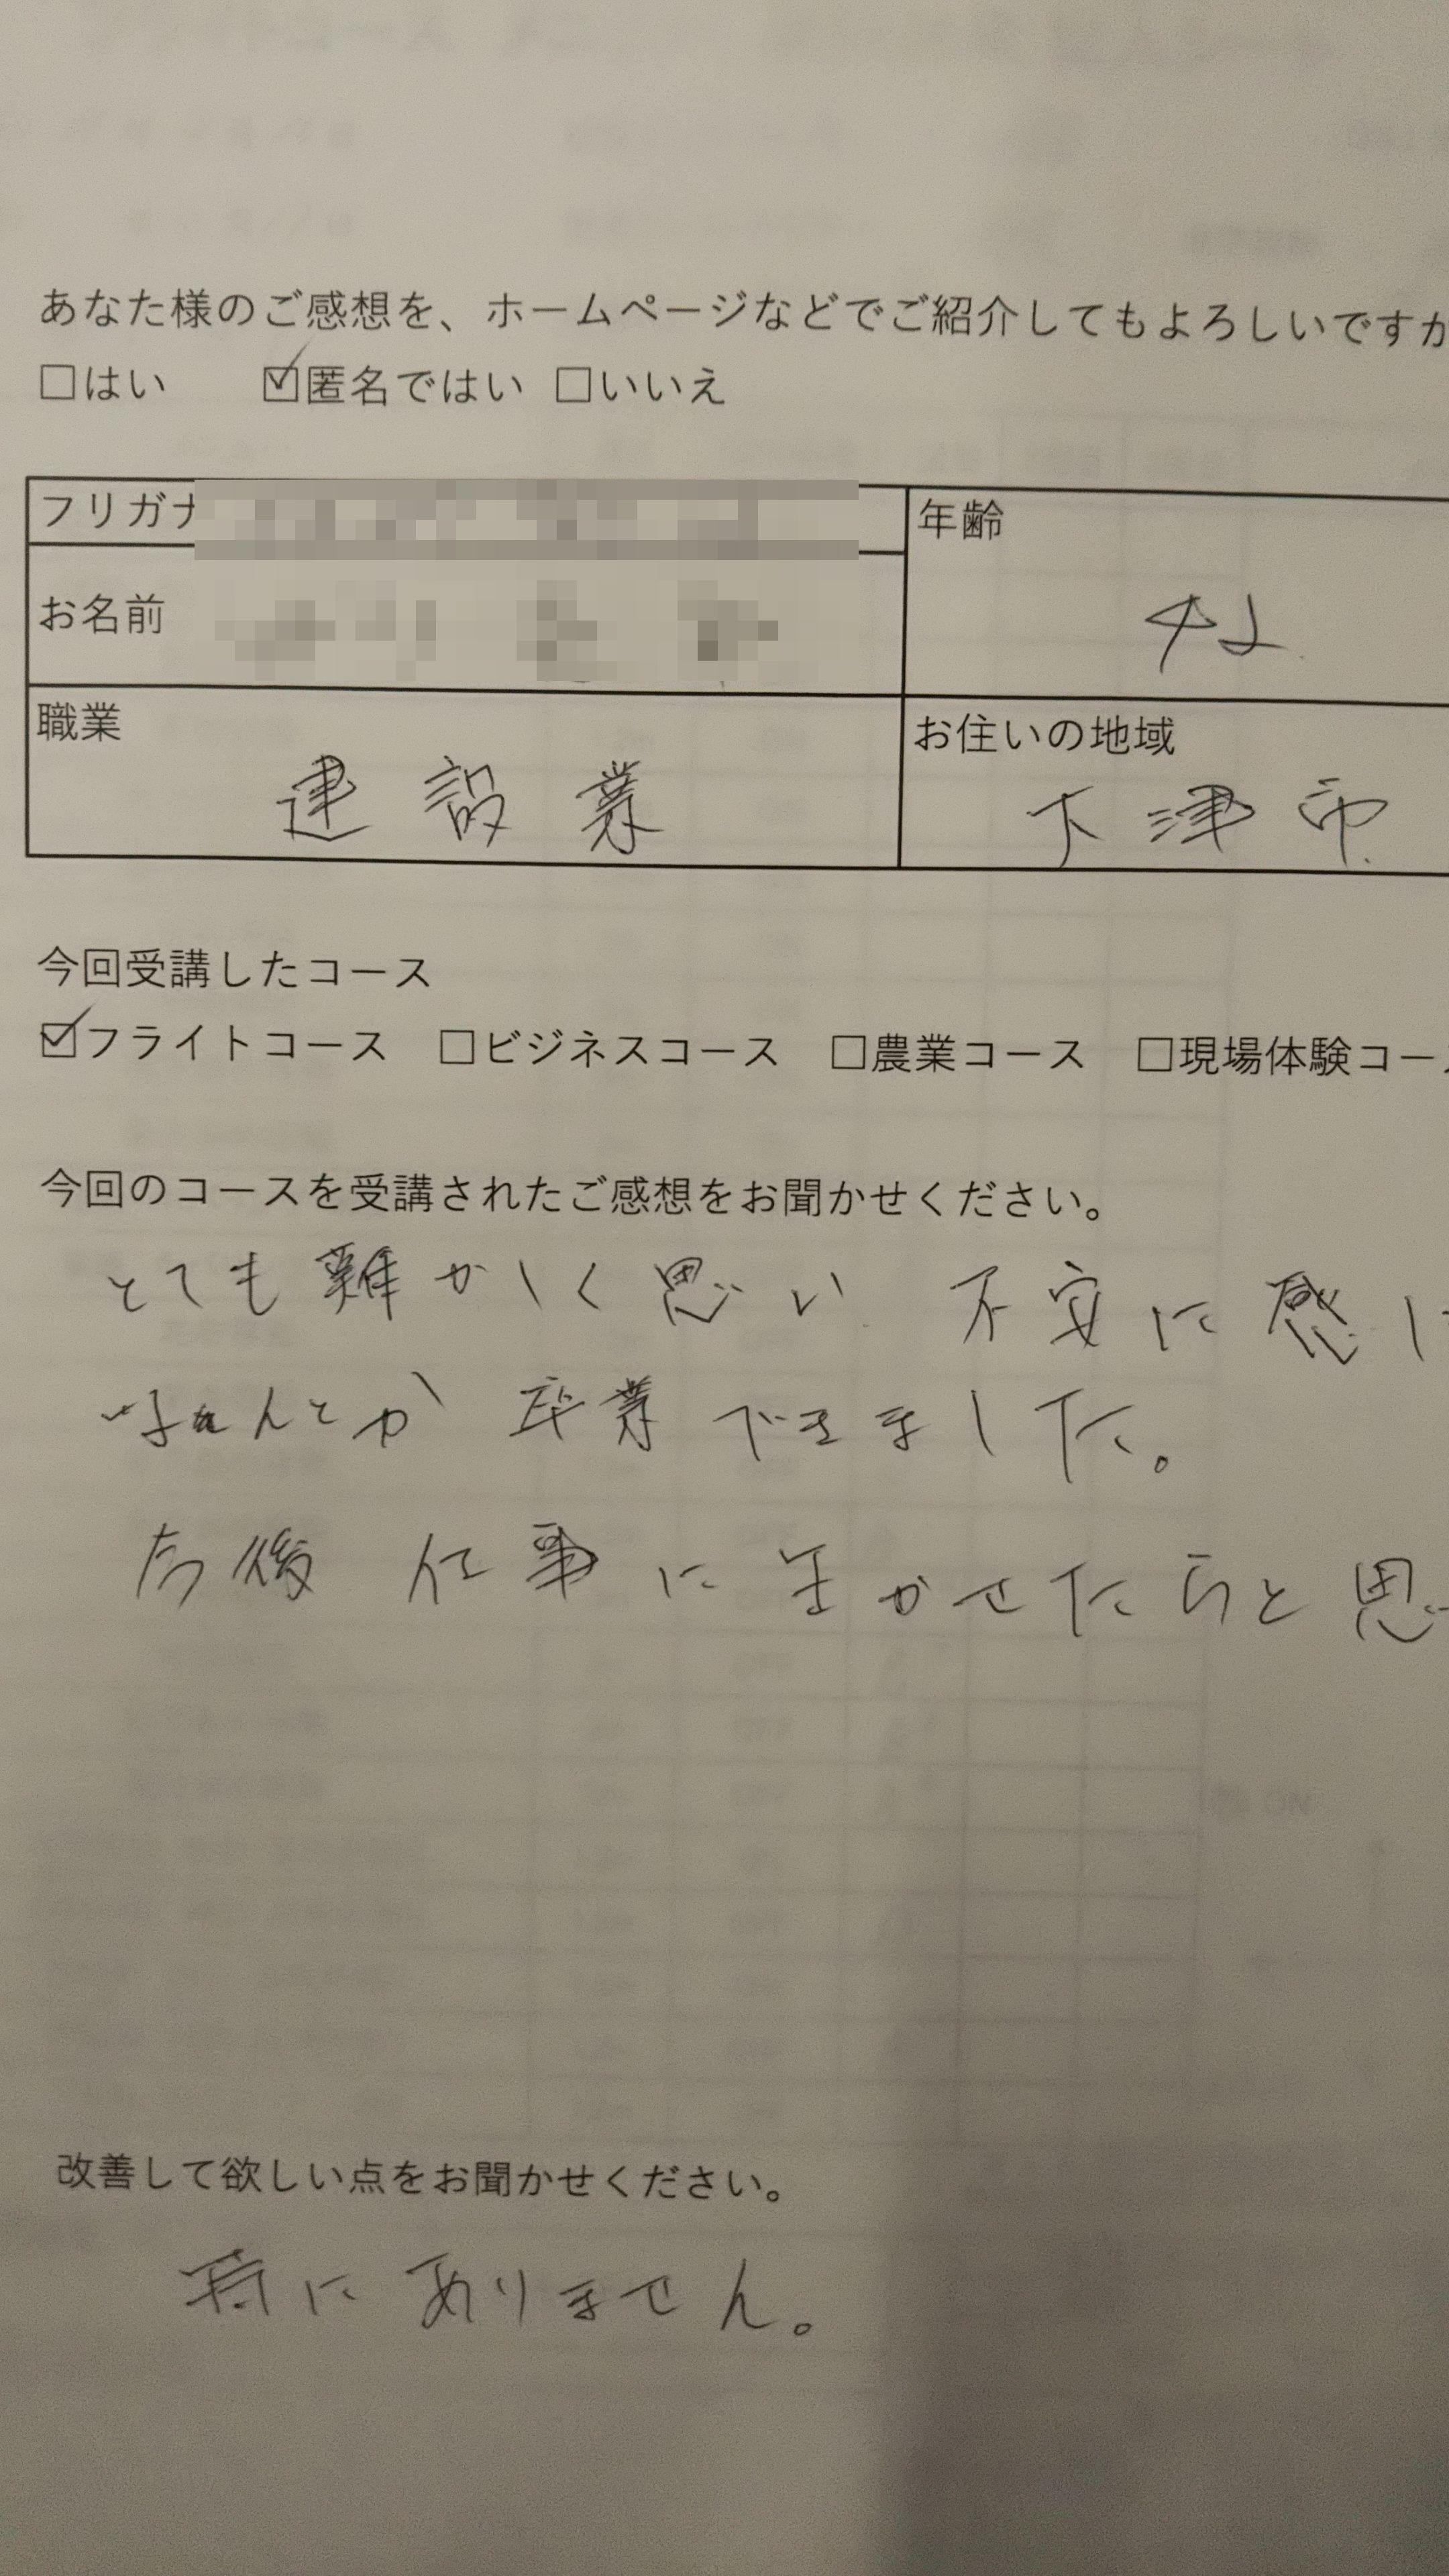 あなた様のご感想を、ホームページなどでご紹介してもよろしいですか
□はい ☑匿名ではい □いいえ
フリガナ
年齢
お名前
42
職業
お住いの地域
建設業
大津市
今回受講したコース
☑フライトコース □ビジネスコース □農業コース □現場体験コー
今回のコースを受講されたご感想をお聞かせください。
とても難かしく思い 不安に感じ
なんとか 卒業できました。
今後 仕事に生かせたらと思
改善して欲しい点をお聞かせください。
特にありません。